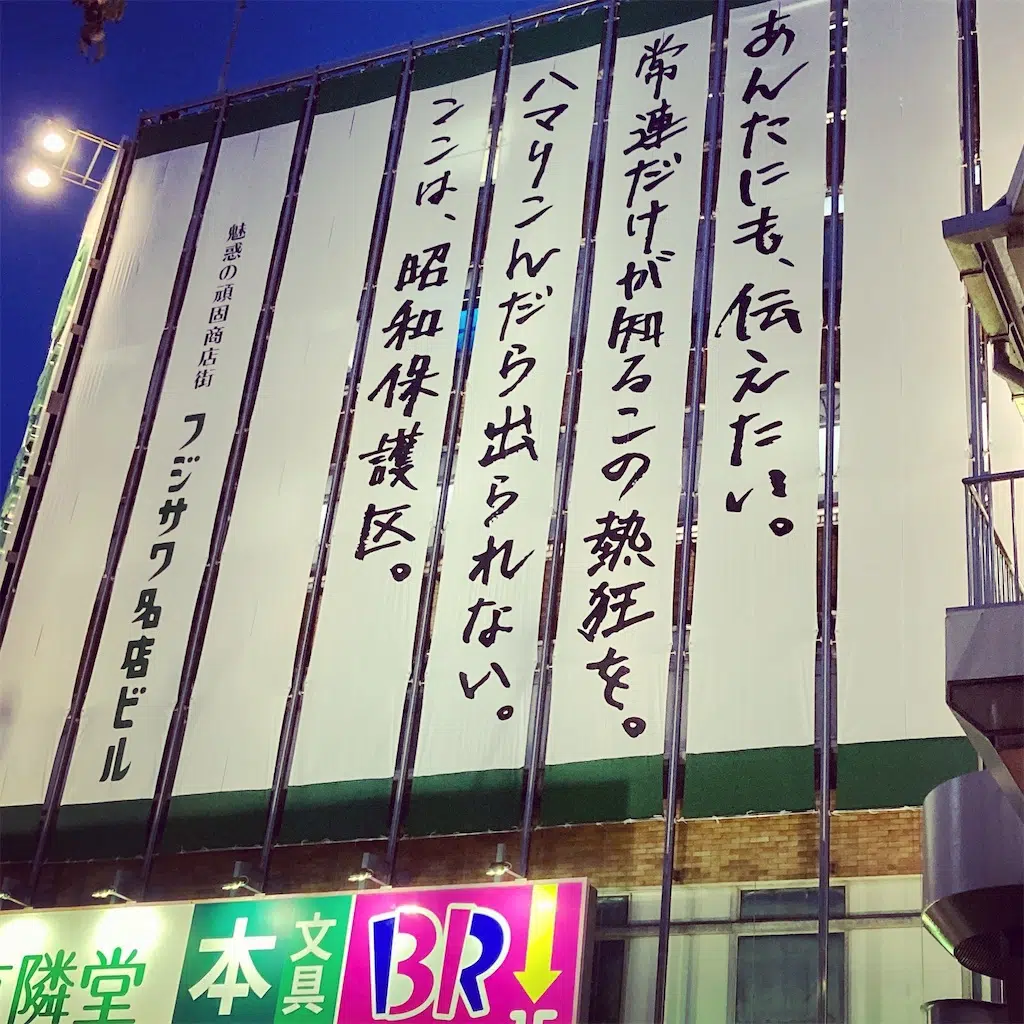 あんたにも、伝えたい。
常連だけが知るこの熱狂を。
ハマりこんだら出られない。
ココは、昭和保護区。
魅惑の頑固商店街
フジサワ名店ビル
隣堂
本
文具
BR